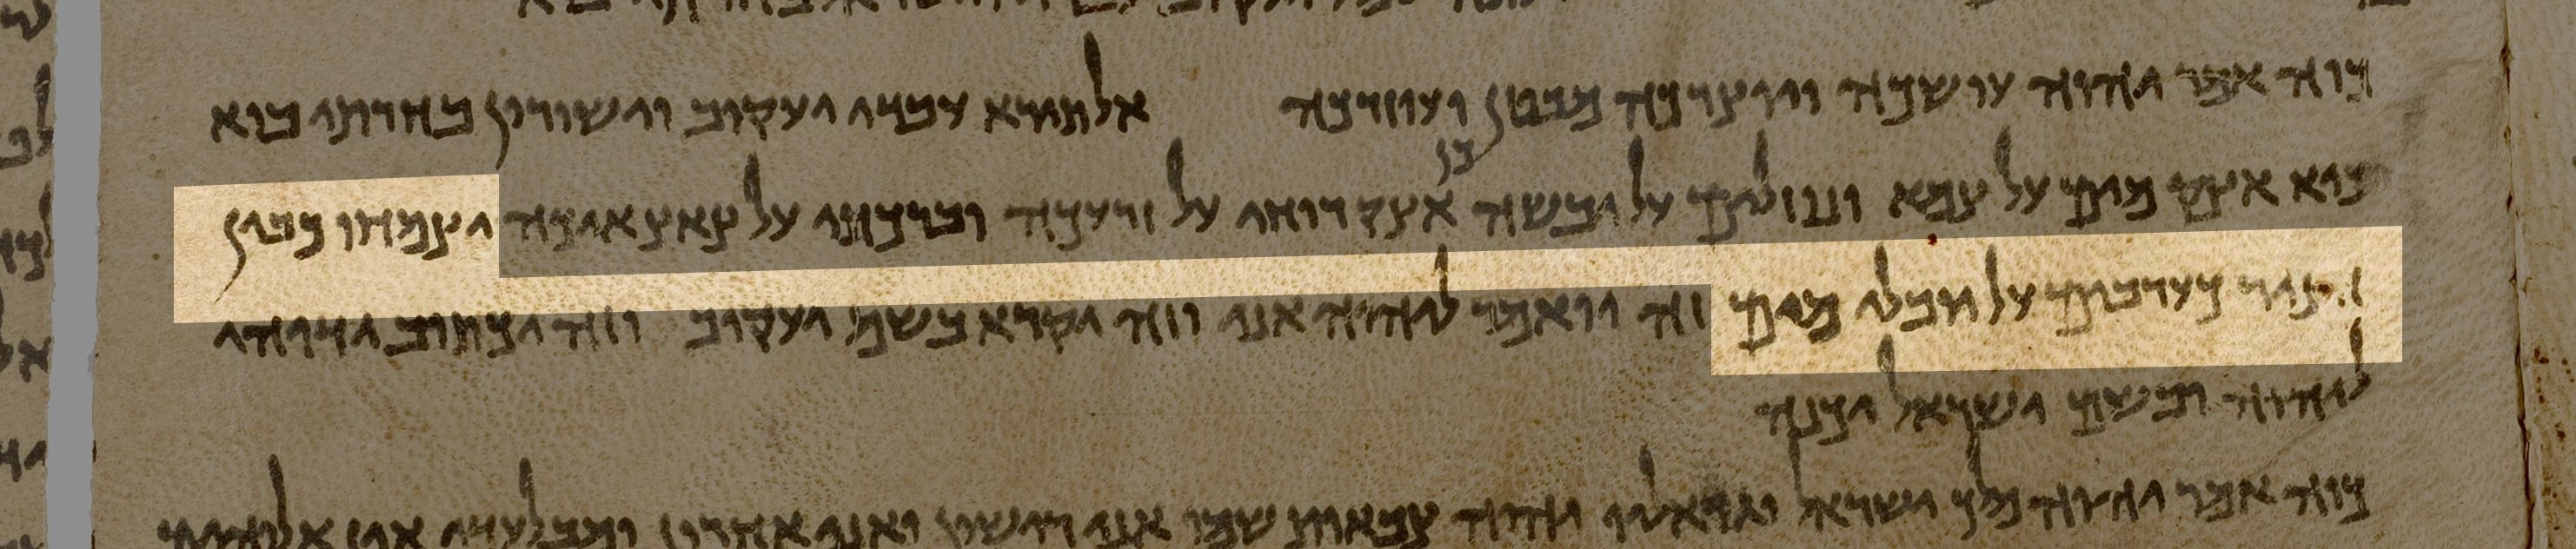 כוה אמר יהוה עושכה ויוצרכה מבטן ועוזרכה אל תירא עבדי יעקוב וישורון בחרתי בוא
כיא אצק מים על צמא ונוזלים על יבשה כן אצק רוחי על זרעכה וברכותי על צאצאיכה יצמחו כבין
חציר כערבים על יבלי מים זה יואמר ליהוה אני וזה יקרא בשם יעקוב וזה יכתוב
ליהוה ובשם ישראל יכנה
כוה אמר יהוה מלך ישראל וגואלו יהוה צבאות שמו אני רישון ואני אחרון ומבלעדי אין אלוהים